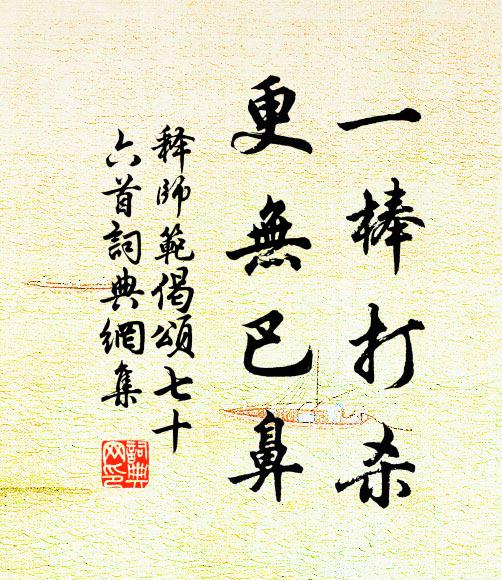 一棒打杀
更無巴鼻
释師範偈頌七十
六首詞典網集
詞典
网印